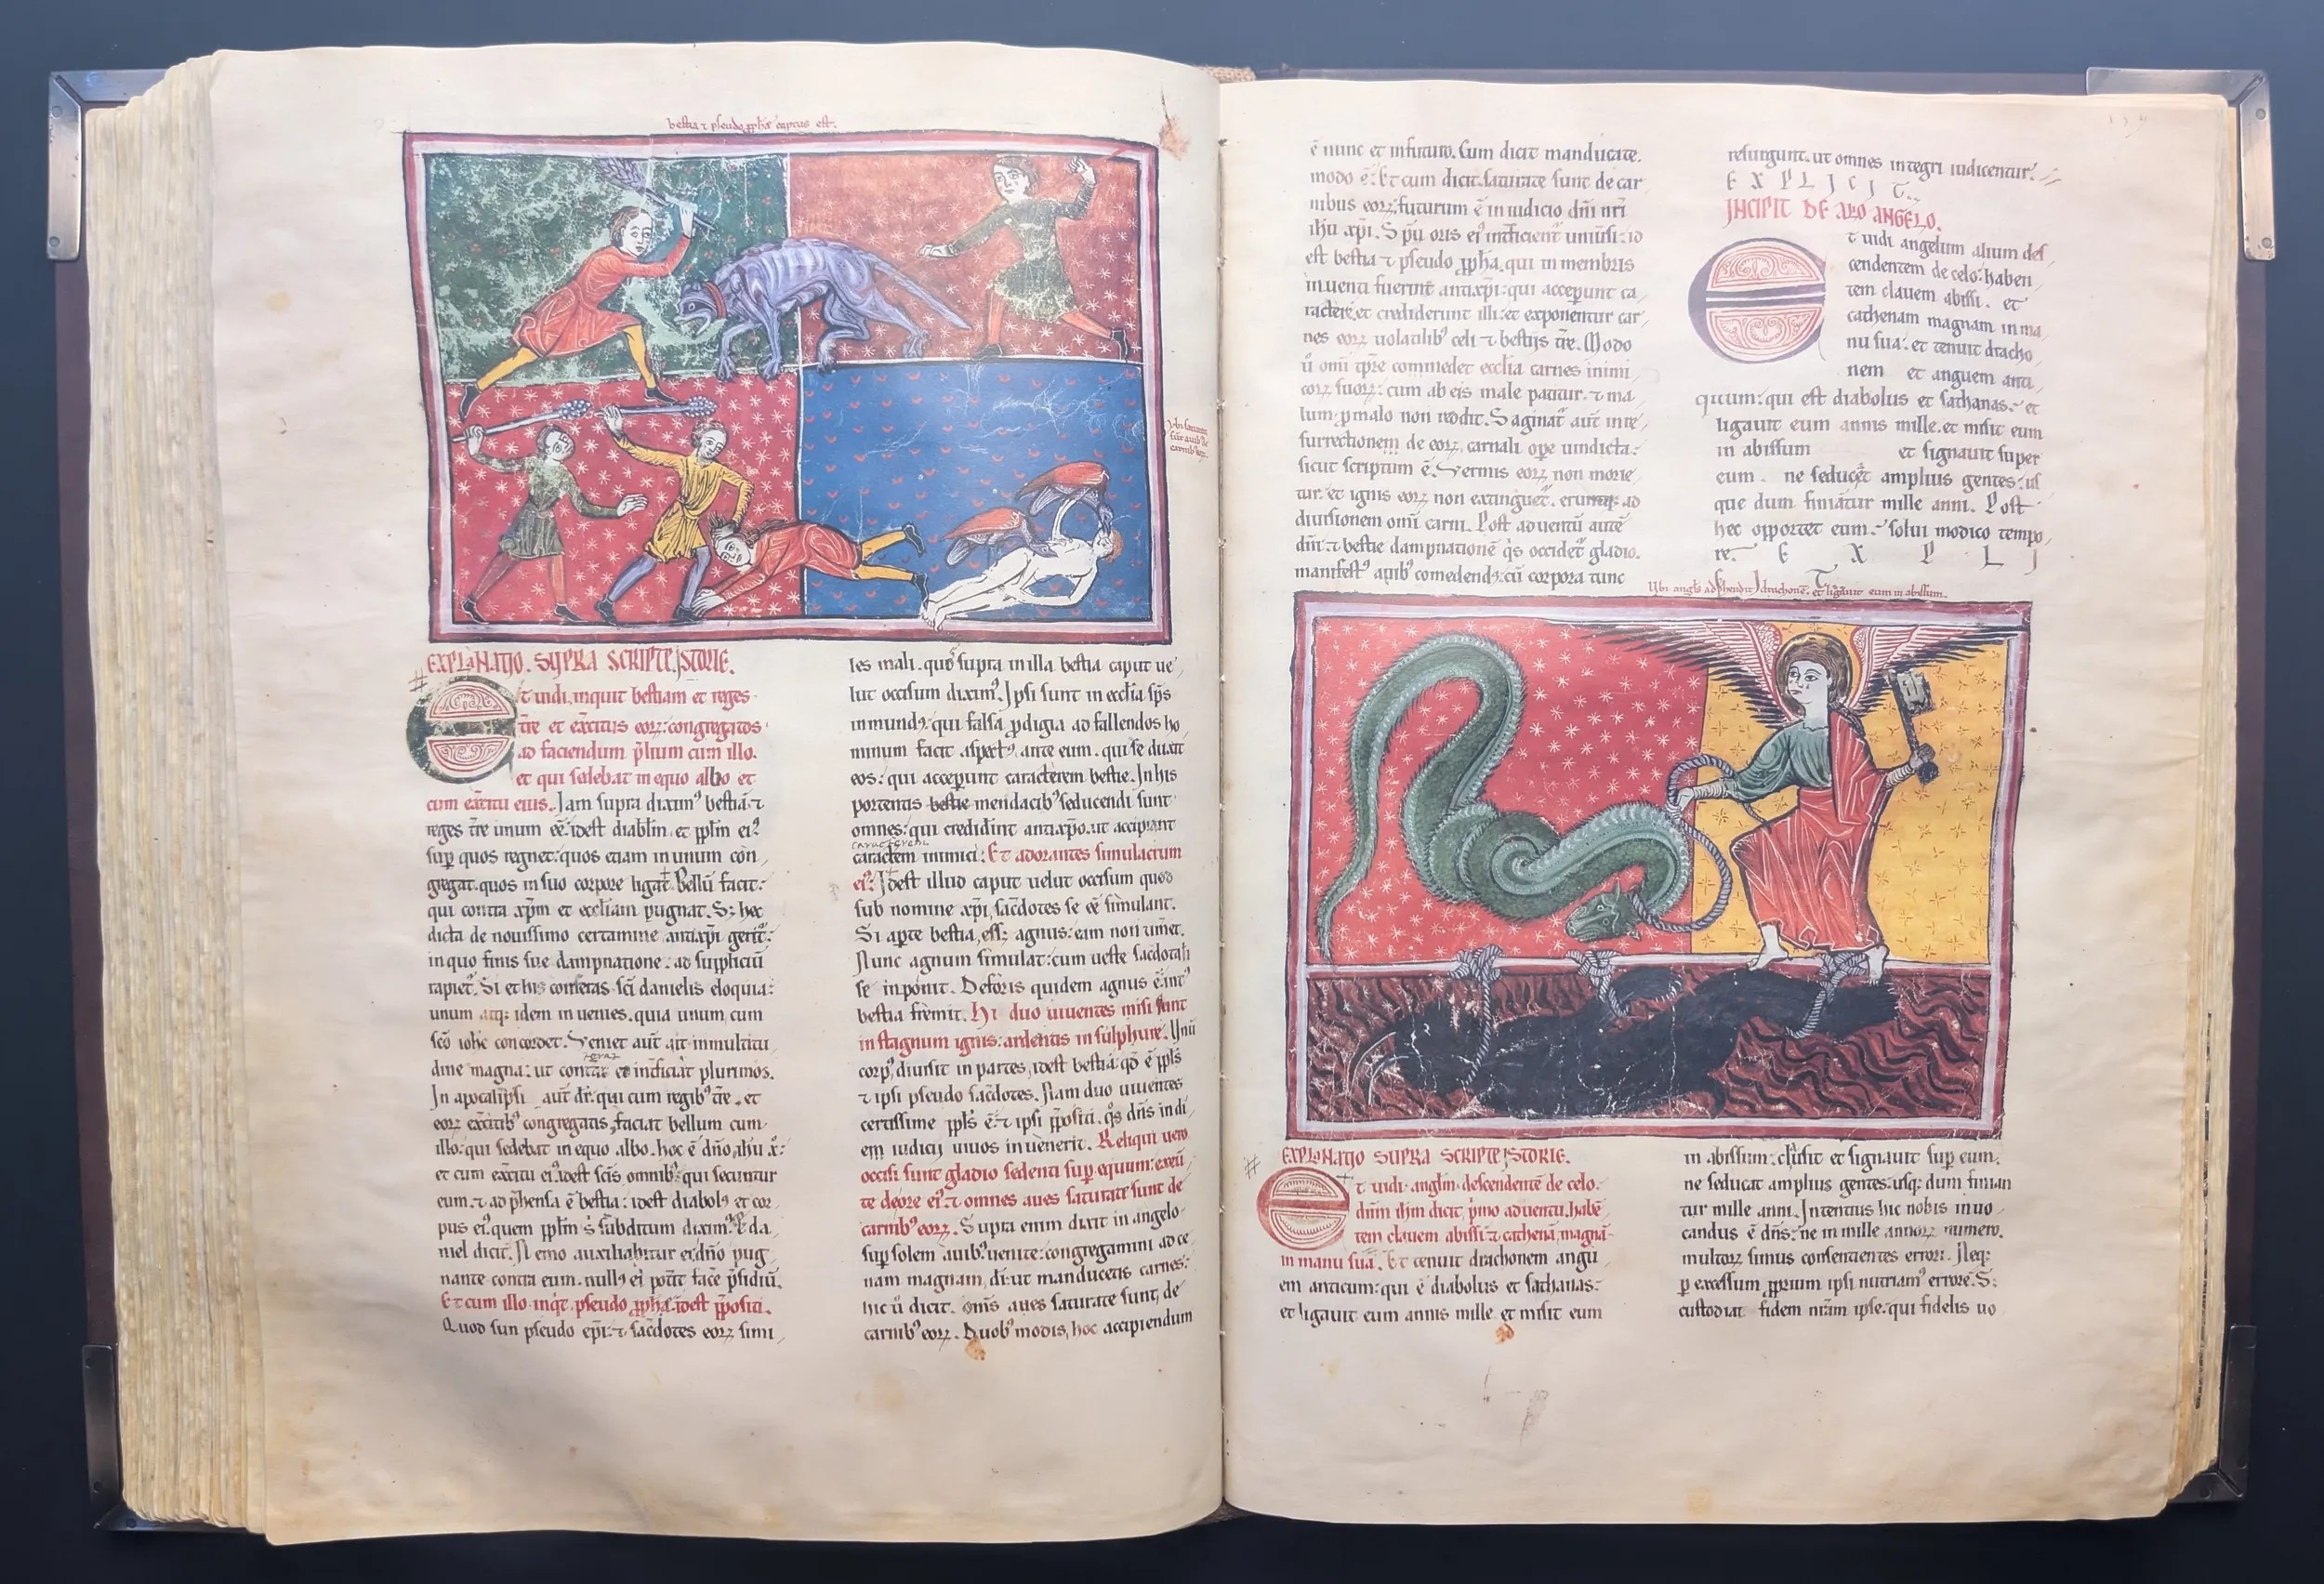 bestia ⁊ pseudo ꝓph̃a captus est.
Ubi saturate
sũt aues de
carnib' eoꝝ.
EXPLANATJO. SUPRA SCRIPTE. JSTORIE.
Et uidi inquit bestiam et reges
tr̃e et exc̃itus eoꝝ: congregatos
ad faciendum p̃lium cum illo.
et qui sedebat in equo albo et
cum exc̃itu eius. Jam supra diximꝰ bestiã ⁊
reges tr̃e unum eẽ: idest diabłm et ppłm eiꝰ
suꝑ quos regnet: quos etiam in unum con
gregat. quos in suo corpore ligat. Bellũ facit:
qui contra xp̃m et ecctiam pugnat. S; hec
dicta de nouissimo certamine antixp̃i gerit̃:
in quo finis sue dampnatione: ad suppliciũ
rapiet̃. Si et his conseras. sc̃i danielis eloquia:
unum atq; idem in uenies. quia unum cum
sc̃o iohe concordet. Veniet aut̃ ait in multitu
dine magna: ut conterat et int̃ficiat plurimos.
In apocalipsi aut̃ dr̃: qui cum regibꝰ tr̃e. et
eoꝝ exc̃itibꝰ congregatis, faciat bellum cum
illo: qui sedebat in equo albo. hoc ẽ dño ihu x̃:
et cum exc̃itu eiꝰ. idest sc̃is omnibꝰ: qui secuntur
eum. ⁊ ad p̃hensa ẽ bestia: idest diabolꝰ et cor
pus eiꝰ. quem ppłm s̃ subditum diximꝰ. Et da
niel dicit. Nemo auxiliabitur ei: dño pug
nante contra eum. nullꝰ ei potit̃ face p̃sidiũ.
Et cum illo. inq̃t. pseudo ꝓph̃a. idest p̃positi.
Quod sun pseudo ep̃i: ⁊ sac̃dotes eoꝝ simi
les mali. quos̃ supra in illa bestia caput ue
lut occisum diximꝰ. Jpsi sunt in ecctia sp̃s
inmundꝰ: qui falsa ꝓdigia ad fallendos ho
minum facit aspectꝰ. ante eum. qui se duxit
eos: qui acceperunt caracterem bestie. In his
portentis bestie mendacibꝰ seducendi sunt
omnes: qui credidint antixp̃o. ut accipiant
caracterem
caractem inimici. Et adorantes simulacrum
eiꝰ. Jdest illud caput uelut occisum quod
sub nomine xp̃i, sac̃dotes se eẽ simulant.
Si aꝑte bestia, ess; agnus: eam non timet.
Nunc agnum simulat: cum ueste sacdotali
se inponit. Deforis quidem agnus ẽ: intꝰ
bestia fremit. Hi duo uiuentes misi sunt
in stagnum ignis: ardentis in sulphure. Unũ
corpꝰ, diuisit in partes, idest bestiã: qđ ẽ ppłs
⁊ ipsi pseudo sac̃dotes. Nam duo uiuentes
certissime ppłs ẽ: ⁊ ipsi p̃positi. qꝰs dñs in di
em iudicij uiuos in uenerit. Reliqui uero
occisi sunt gladio sedenti suꝑ equum: exeũ
te de ore eiꝰ. ⁊ omnes aues saturate sunt de
carnibꝰ eoꝝ. Supra enim dixit in angelo
suꝑ solem auibꝰ: uenite: congregamini ad ce
nam magnam, di: ut manducetis carnes:
hic ũ dicit. om̃s aues saturate sunt, de
carnibꝰ eoꝝ. Duobꝰ modis, hoc accipiendum
ẽ nunc et in futuro. Cum dicit manducate.
modo ẽ. Et cum dicit. saturate sunt de car
nibus eoꝝ, futurum ẽ in iudicio dñi nr̃i
ihu xp̃i. Sp̃u oris eiꝰ int̃ficient̃ uniũsi: id
est bestia ⁊ pseudo ꝓph̃a. qui in membris
inuenti fuerint antixp̃i: qui acceperunt ca
ractere, et crediderunt illi: et exponentur car
nes eoꝝ uolatilibꝰ celi ⁊ bestijs tr̃e. Modo
ũ omi tp̃re commedet ecctia carnes inimi
coꝝ suoꝝ: cum ab eis male patitur. ⁊ ma
lum p malo non reddit. Saginat̃ aut̃ in re
surrectionem de eoꝝ, carnali oꝑe uindicta:
sicut scriptum ẽ. Vermis eoꝝ non morie
tur. et ignis eoꝝ non extinguet̃. erunt ad
diuisionem omi carni. Post aduentũ autẽ
dñi: ⁊ bestie dampnationẽ qꝰs occidet̃ gladio.
manifestꝰ auibꝰ comedendꝰ: cũ corpora tunc
139
resurgunt. ut omnes integri iudicentur.
E X P L J C J T.
JNCIPIT DE ALIO ANGELO.
Et uidi angelum alium des
cendentem de celo: haben
tem clauem abissi. et
cathenam magnam in ma
nu sua: et tenuit dracho
nem et anguem anti
quum: qui est diabolus et sathanas: et
ligauit eum annis mille. et misit eum
in abissum et signauit super
eum. ne seducet̃ amplius gentes: us
que dum finiãtur mille anni. Post
hec oꝑportet eum: solui modico tempo
re. E X P L J
C J T
Ubi angłs adp̃hendit drachonẽ. et ligauit eum in abissum.
EXPLANATJO SUPRA SCRIPTE JSTORIE.
Et uidi angłm descendentẽ de celo.
dñm ihm dicit, p̃mo aduentu. habẽ
tem clauem abissi: ⁊ cathenã, magnã
in manu sua. Et tenuit drachonem angu
em anticum: qui ẽ diabolus et sathanas:
et ligauit eum annis mille et misit eum
in abissum: clusit et signauit suꝑ eum.
ne seducat amplius gentes: usq; dum finian
tur mille anni. Intentius hic nobis inuo
candus ẽ dñs: ne in mille annoꝝ numero.
multoꝝ simus consentientes errori. Neq;
ꝑ excessum ꝓprium ipsi nutriamꝰ errorẽ. S;
custodiat fidem nr̃am ipse: qui fidelis uo